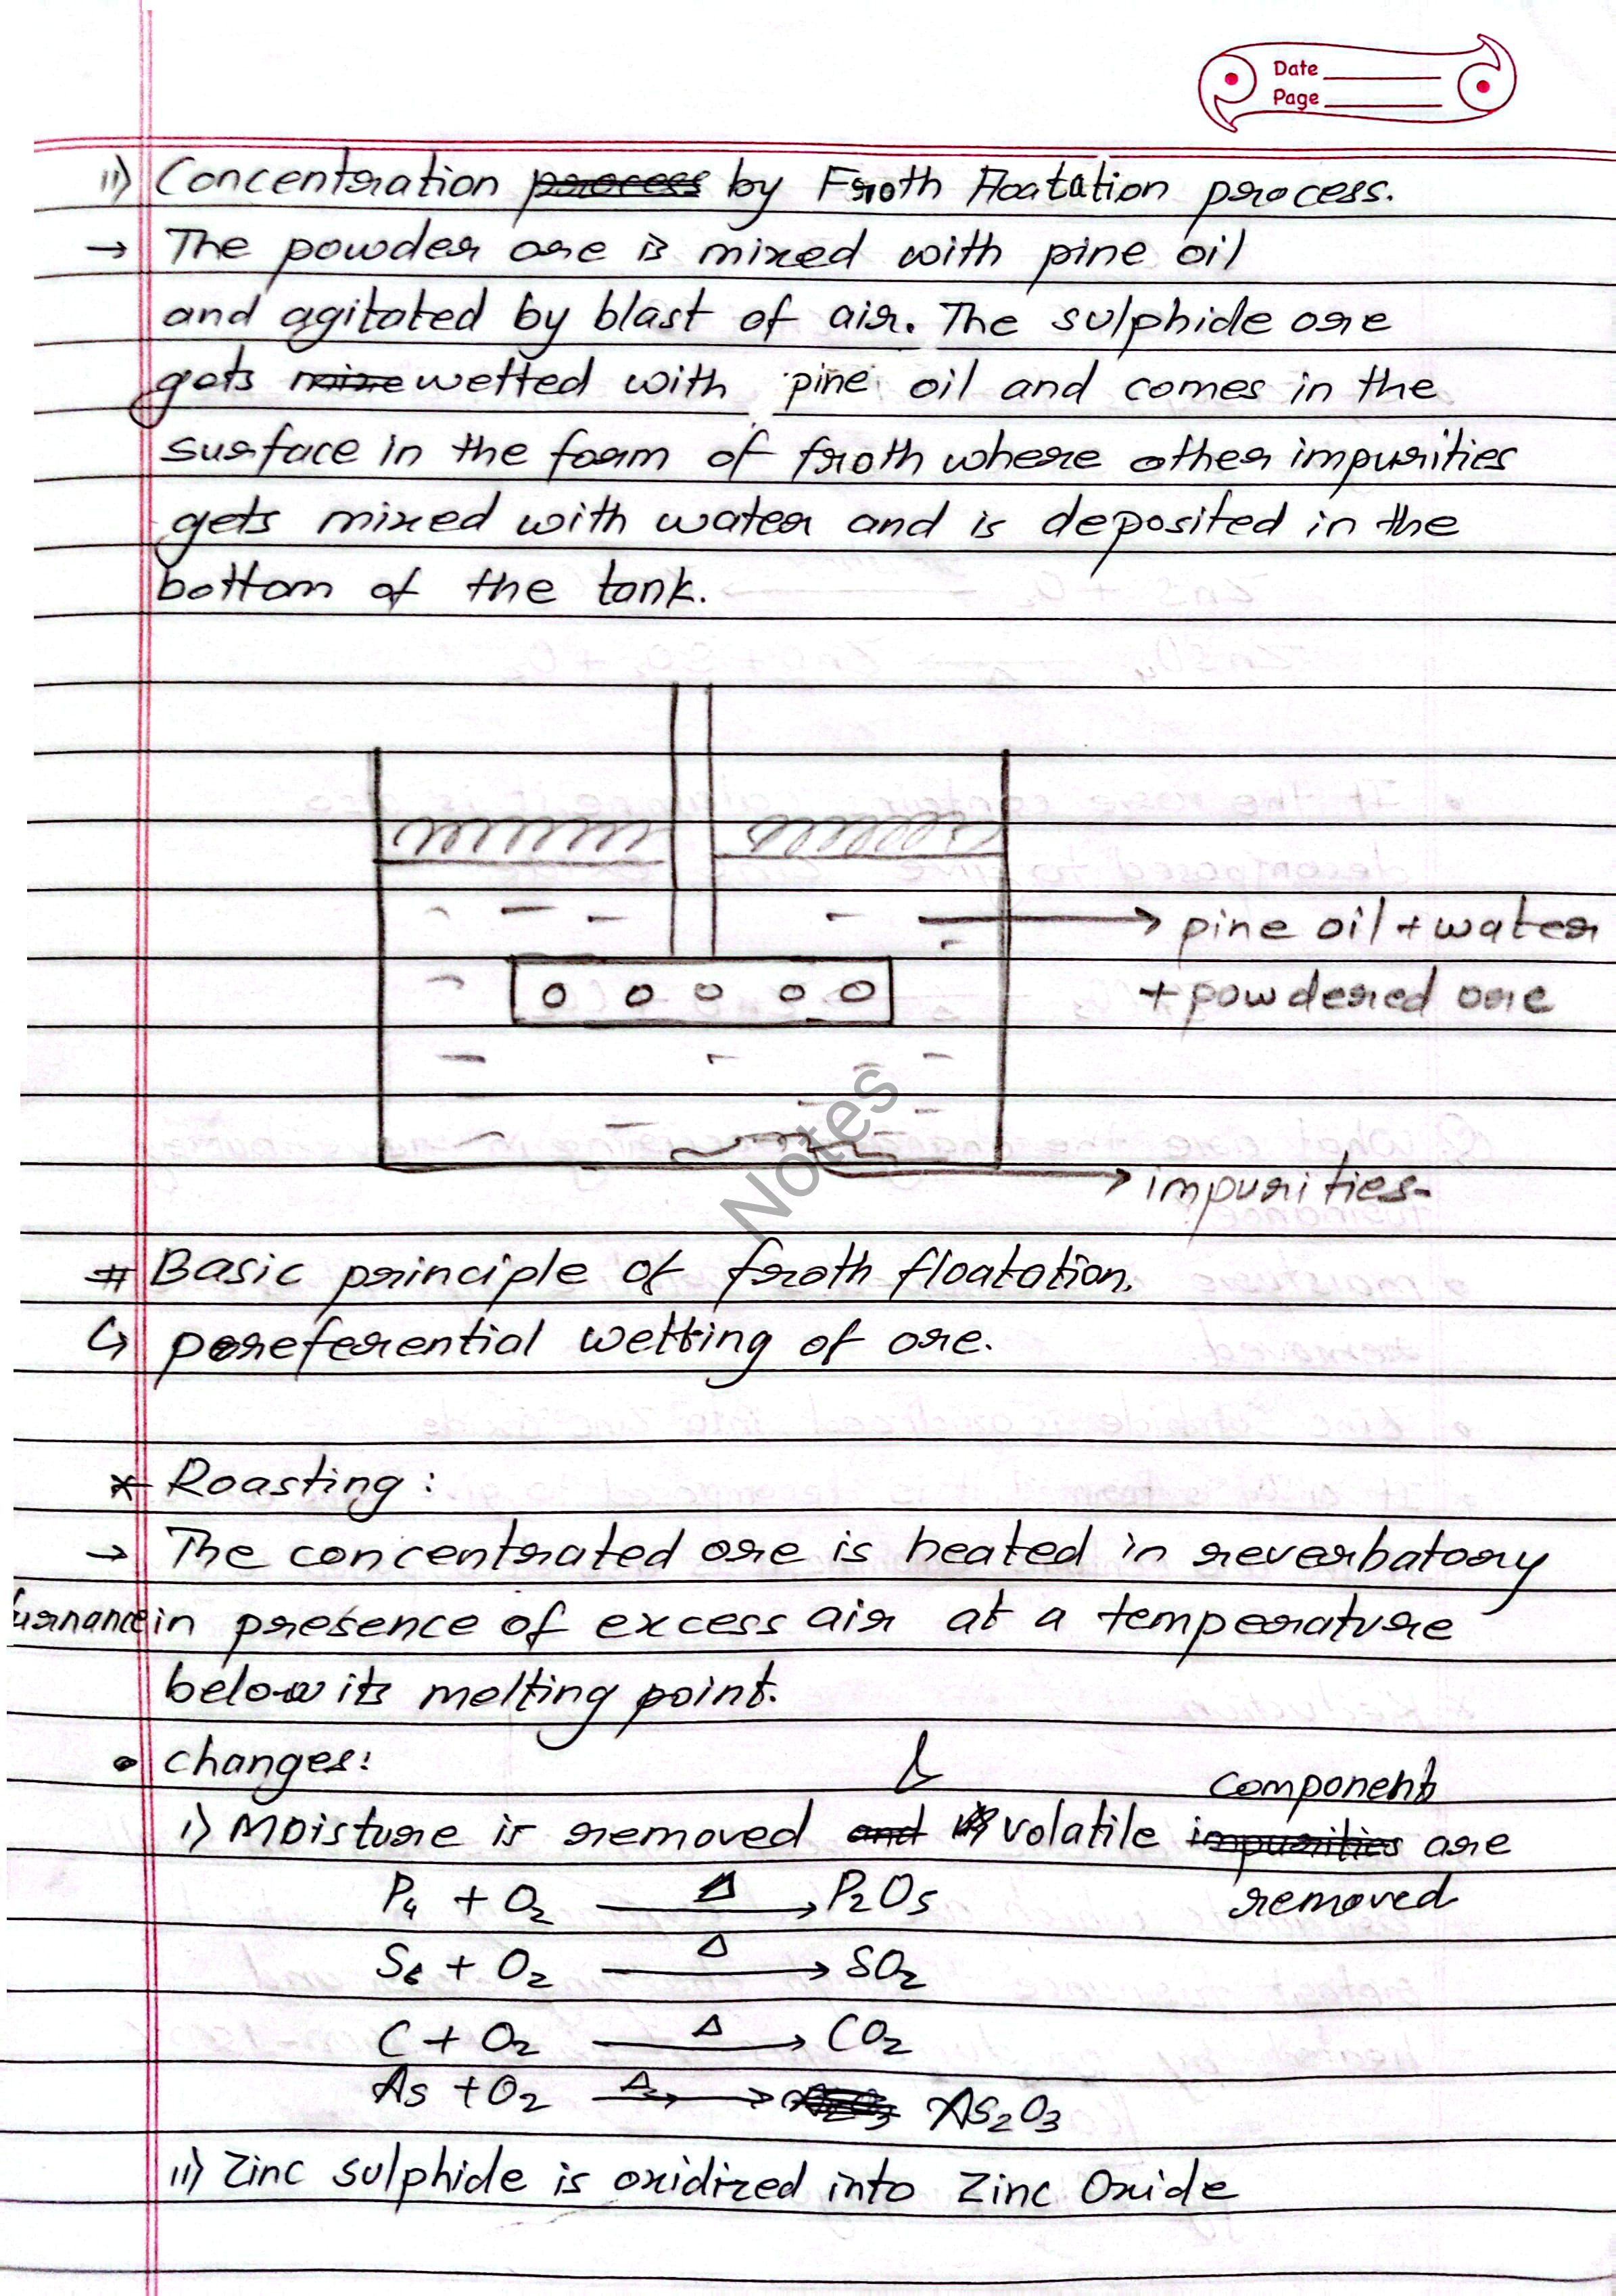 Date
Page
ii) Concentration process by Froth Floatation process.
→ The powder ore is mixed with pine oil
and agitated by blast of air. The sulphide ore
gets mixe wetted with pine oil and comes in the
surface in the form of froth where other impurities
gets mixed with water and is deposited in the
bottom of the tank.
→ pine oil + water
+ powdered ore
→ impurities
Notes
# Basic principle of froth floatation.
↳ preferential wetting of ore.
* Roasting :
→ The concentrated ore is heated in reverbatory
furnance in presence of excess air at a temperature
below its melting point.
• changes:
component
i) Moisture is removed and volatile impurities are
removed
P₄ + O₂ —Δ→ P₂O₅
S₆ + O₂ —Δ→ SO₂
C + O₂ —Δ→ CO₂
As + O₂ —Δ→ As₂O₃ As₂O₃
ii) Zinc sulphide is oxidized into Zinc Oxide